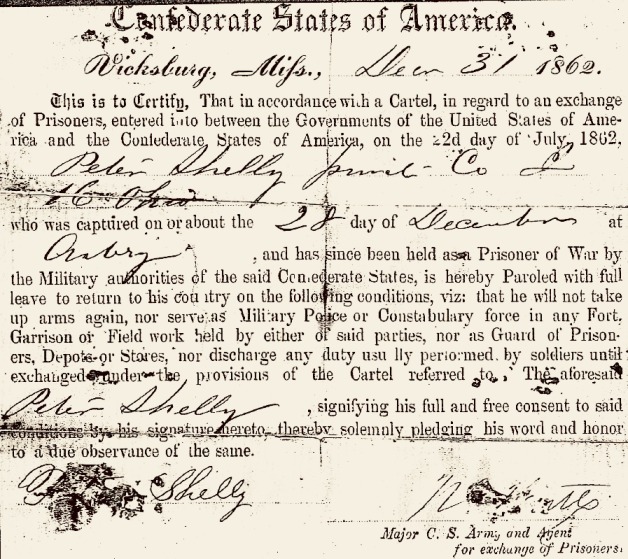 Confederate States of America.
Vicksburg, Miss., Decr 31 1862.
This is to Certify, That in accordance with a Cartel, in regard to an exchange
of Prisoners, entered into between the Governments of the United States of Ame-
rica and the Confederate States of America, on the 22d day of July, 1862,
Peter Shelly Co
16 Ohio
who was captured on or about the 28 day of December at
, and has since been held as a Prisoner of War by
the Military authorities of the said Confederate States, is hereby Paroled with full
leave to return to his country on the following conditions, viz: that he will not take
up arms again, nor serve as Military Police or Constabulary force in any Fort,
Garrison or Field work held by either of said parties, nor as Guard of Prison-
ers, Depots or Stores, nor discharge any duty usually performed by soldiers until
exchanged under the provisions of the Cartel referred to. The aforesaid
Peter Shelly, signifying his full and free consent to said
conditions by his signature hereto, thereby solemnly pledging his word and honor
to a due observance of the same.
Shelly
Major C. S. Army and Agent
for exchange of Prisoners.